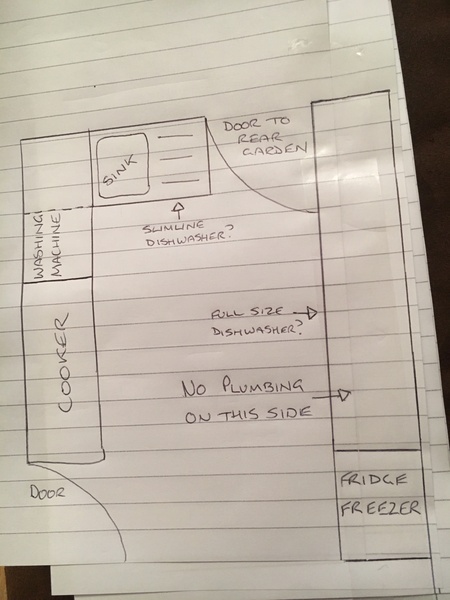 DOOR TO
REAR
GARDEN
SINK
SLIMLINE
DISHWASHER?
WASHING
MACHINE
COOKER
FULL SIZE
DISHWASHER?
NO PLUMBING
ON THIS SIDE
DOOR
FRIDGE
FREEZER